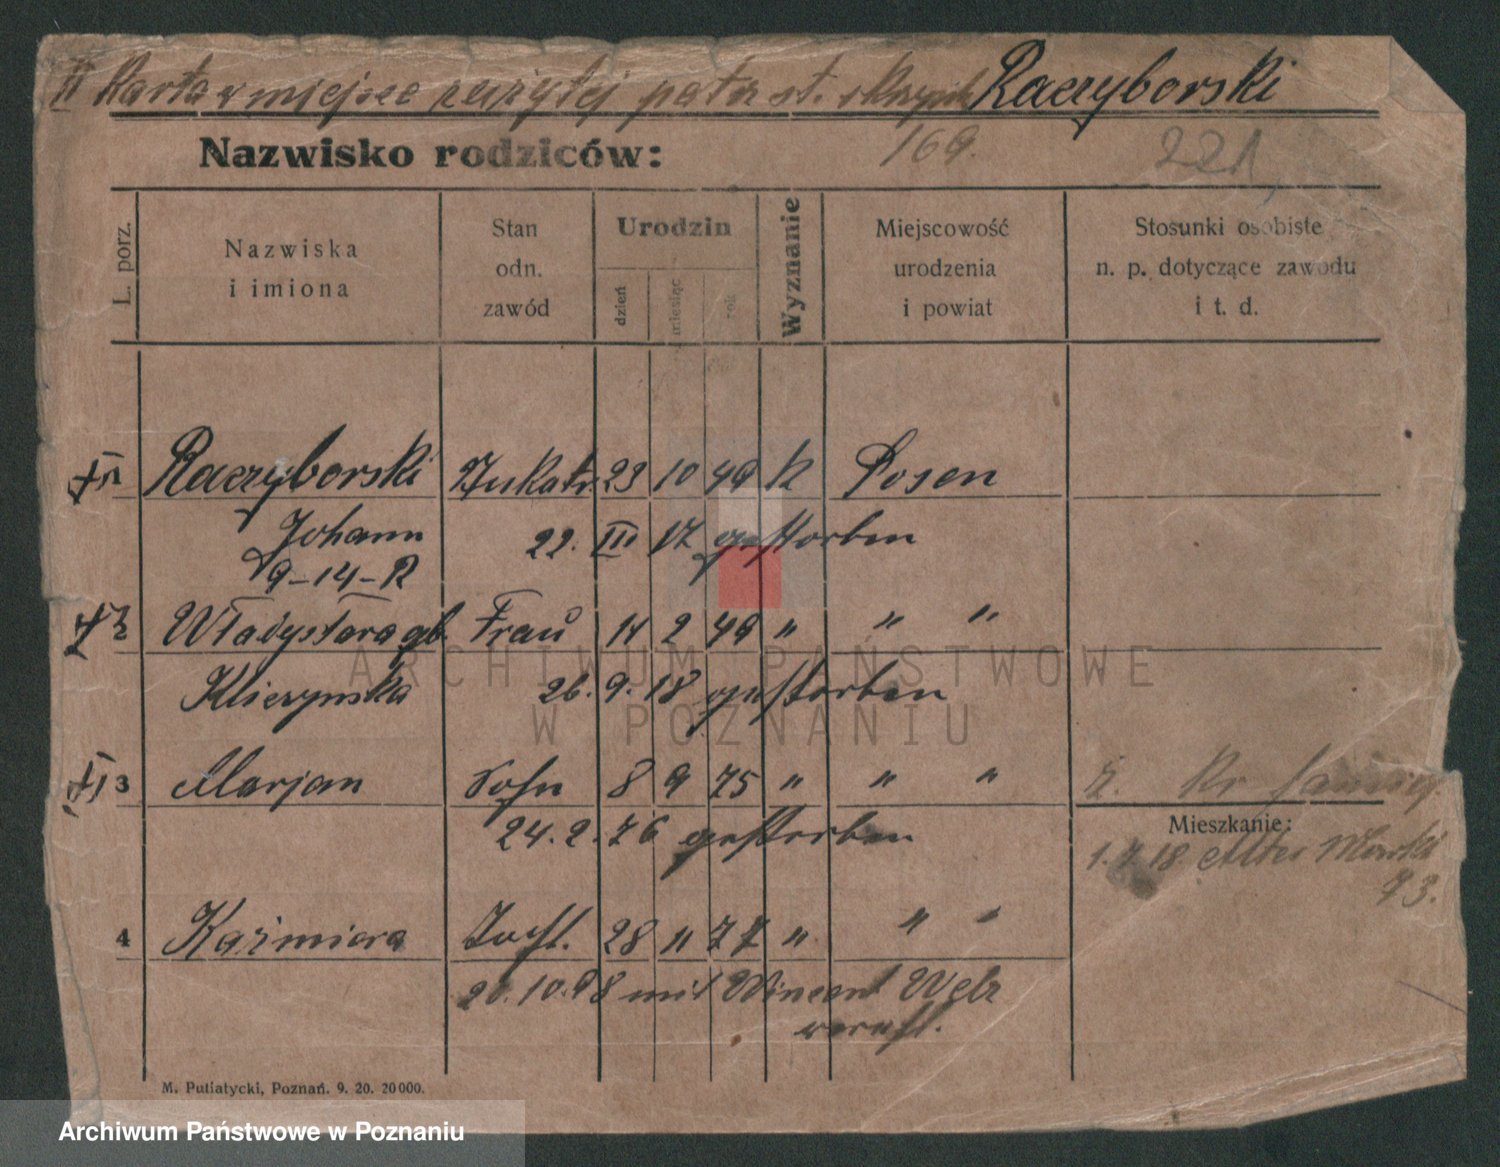 II Karta w miejsce zużytej patrz st. skrzynk Raczyborski
Nazwisko rodziców: 169. 221
L. porz.
Nazwiska
i imiona
Stan
odn.
zawód
Urodzin
dzień
miesiąc
rok
Wyznanie
Miejscowość
urodzenia
i powiat
Stosunki osobiste
n. p. dotyczące zawodu
i t. d.
Raczyborski 23 10 49 K Posen
Johann 22. III 17 gestorben
9-14-R
2 Władysława gb. Frau 14 2 49 " " "
26. 9. 18 gestorben
3 Marjan Sohn 8 9 75 " " "
24. 2. 76 gestorben
Mieszkanie:
1. 7. 18 Alter Markt
73.
4 Kaźmiera Tocht. 28 11 77 " " "
26. 10. 98 mit Vincent Welz
verehl.
M. Putiatycki, Poznań. 9. 20. 20000.
ARCHIWUM PAŃSTWOWE
W POZNANIU
Archiwum Państwowe w Poznaniu